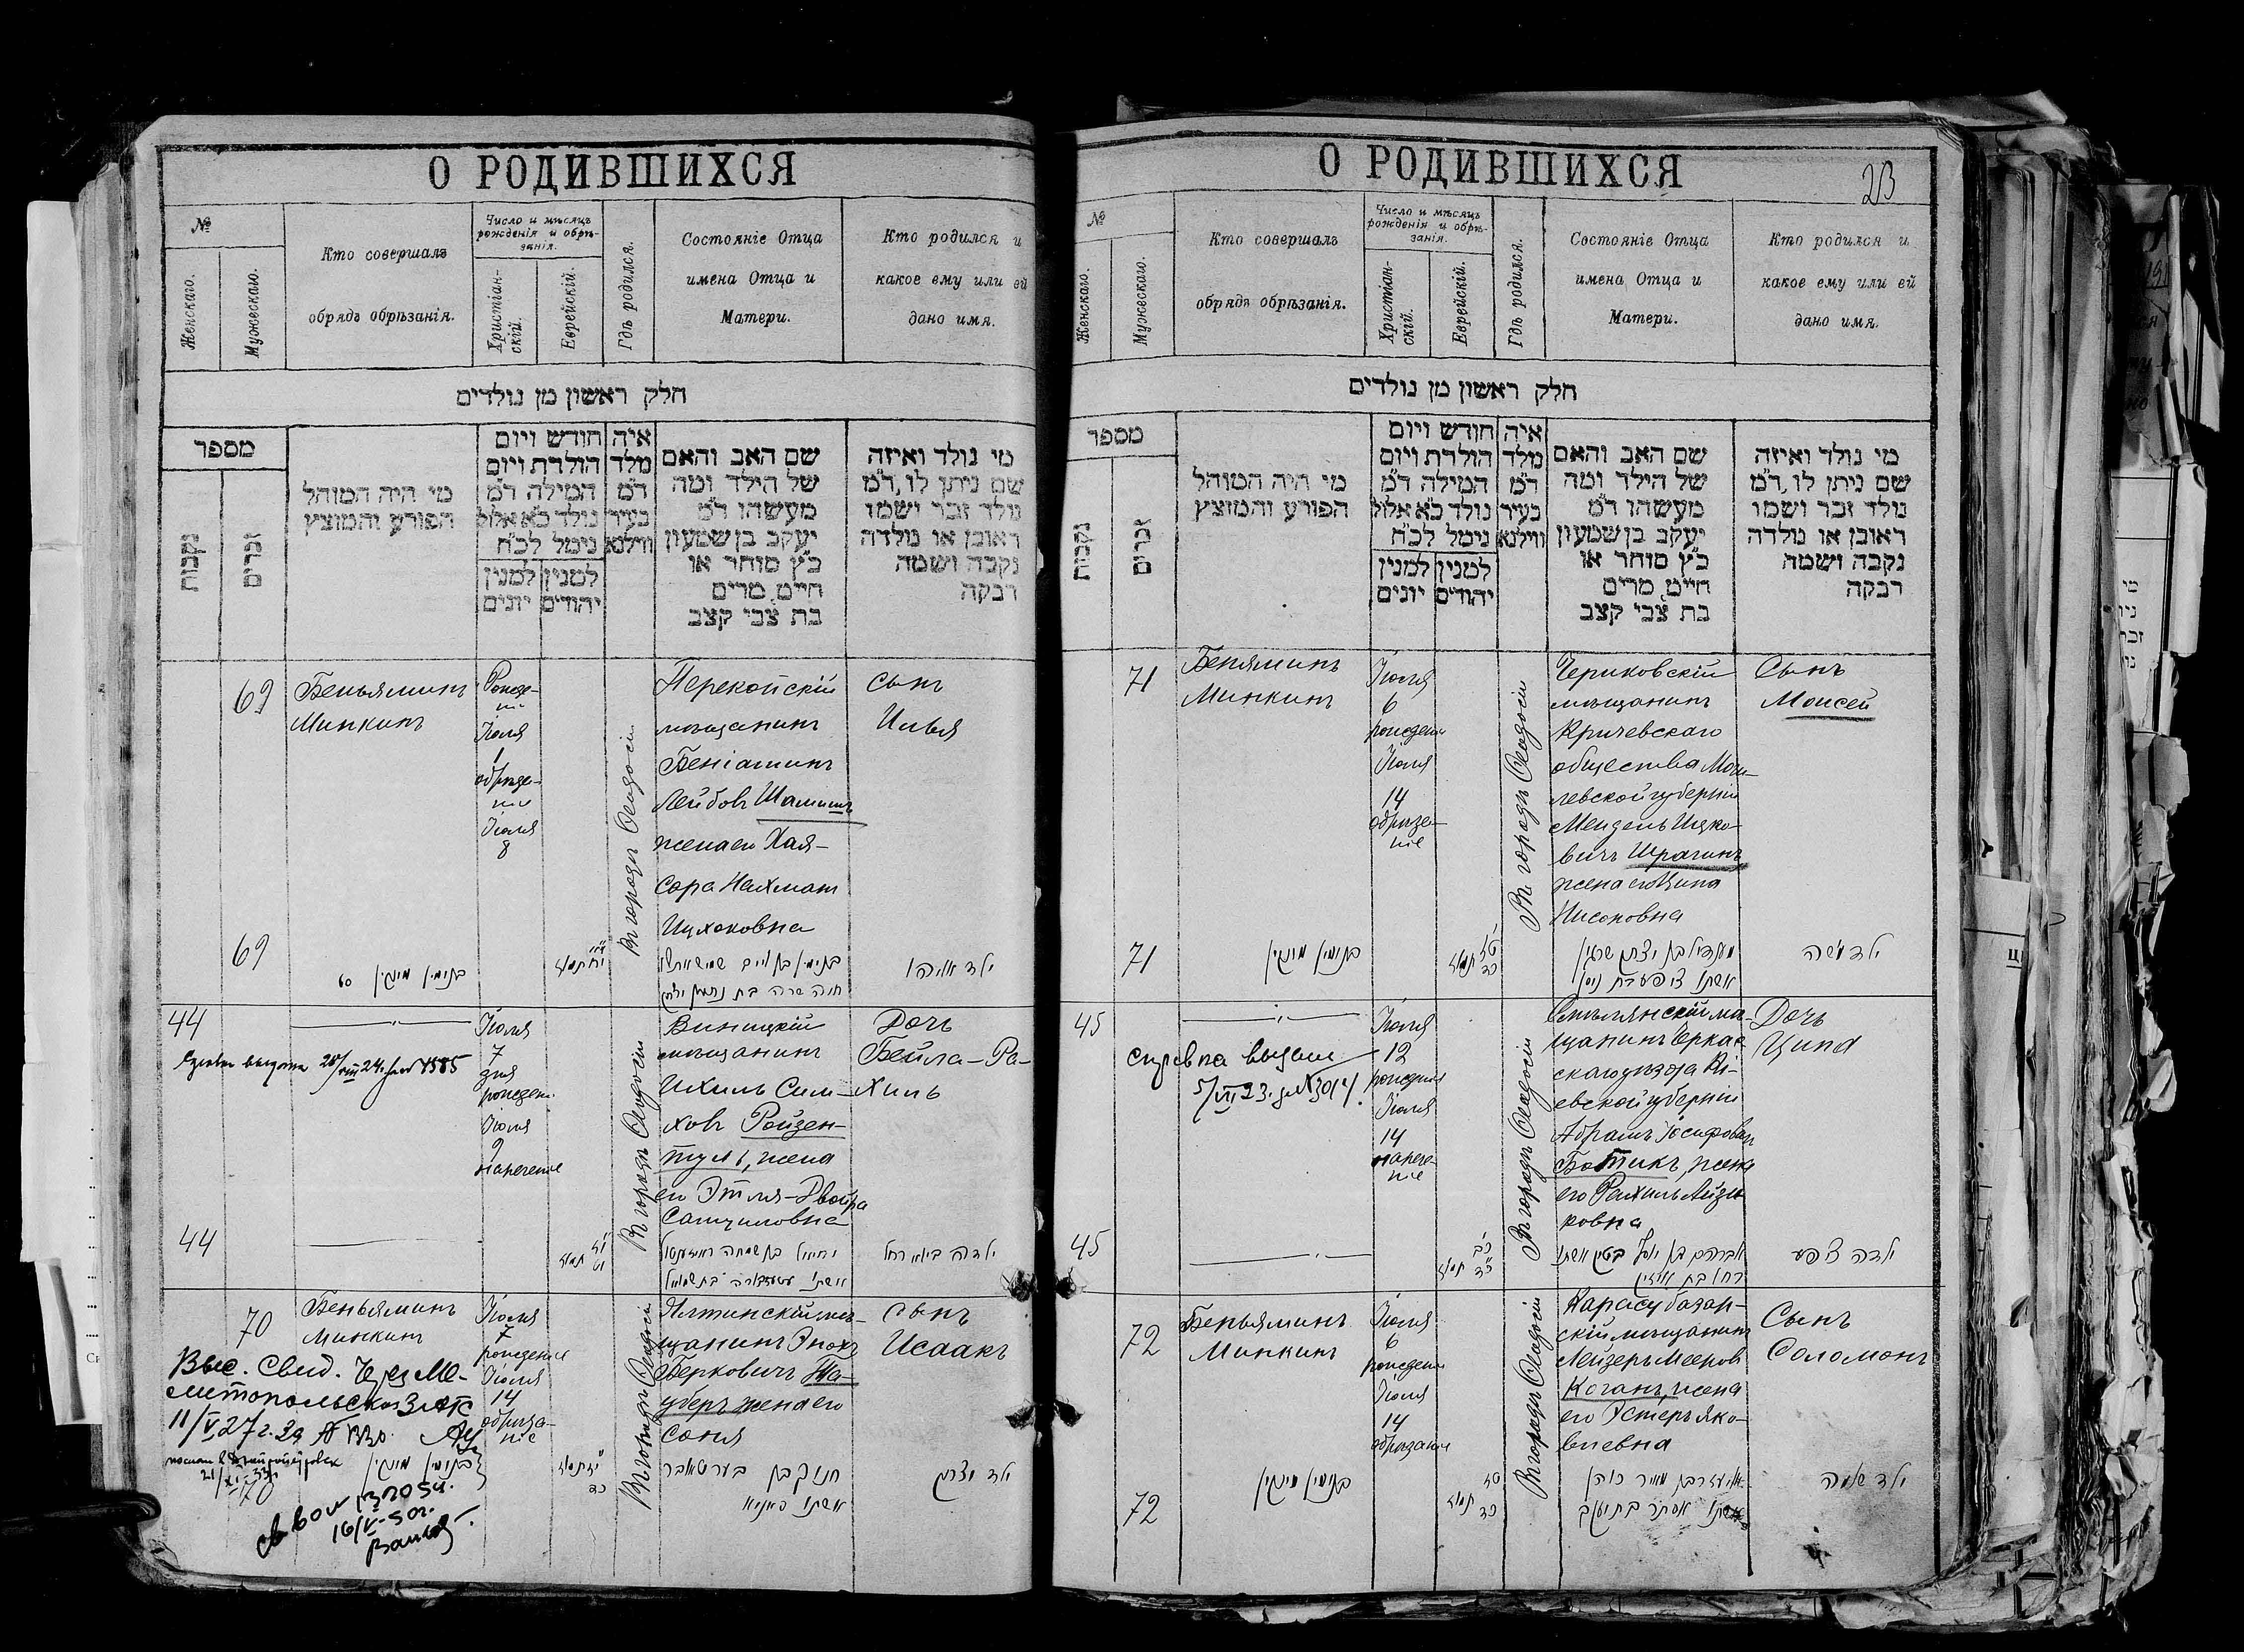 О РОДИВШИХСЯ
№
Женскаго.
Мужескаго.
Кто совершалъ
обрядъ обрѣзанія.
Число и мѣсяцъ
рожденія и обрѣ-
занія.
Христіан-
скій.
Еврейскій.
Гдѣ родился.
Состояніе Отца
имена Отца и
Матери.
Кто родился и
какое ему или ей
дано имя.
חלק ראשון מן נולדים
מספר
נקבות
זכרים
מי היה המוהל
הפורע והמוצץ
חודש ויום
הולדת ויום
המילה ד״מ
נולד כ״א אלול
נימל לכ״ח
למנין
יהודים
למנין
יונים
איה
מלד
ד״מ
בעיר
ווילנא
שם האב והאם
של הילד ומה
מעשהו ד״מ
יעקב בן שמעון
כ״ץ סוחר או
חייט, מרים
בת צבי קצב
מי נולד ואיזה
שם ניתן לו, ד״מ
נולד זכר ושמו
ראובן או נולדה
נקבה ושמה
רבקה
69
Беньяминъ
Минкинъ
Рожде-
ніе
Іюля
1
обрѣза-
ніе
Іюля
8
Въ городѣ Ѳеодосіи
Перекопскій
мѣщанинъ
Беніаминъ
Лейбовъ Шамишъ
жена его Хая-
Сора Нахманъ
Ицхоковна
Сынъ
Илья
69
בנימין מינקין
תמוז
ילד אליהו
44
Іюля
7
дня
рожден.
Іюля
9
нареченіе
Въ городѣ Ѳеодосіи
Виницкій
мѣщанинъ
Ихиль Сим-
ховъ Ройзен-
туль, жена
его Этля-Двойра
Самуиловна
Дочь
Бейла-Ра-
хиль
44
תמוז
יחיאל בן שמחה
ילדה ביילא רחל
70
Беньяминъ
Минкинъ
Іюля
7
рожденіе
Іюля
14
обрѣза-
ніе
Въ городѣ Ѳеодосіи
Ялтинскій мѣ-
щанинъ Энохъ
Берковичъ Та-
уберъ жена его
Соня
Сынъ
Исаакъ
Выс. Свид. Через Ме-
литопольск. ЗАГС
11/V 27 г. За №
בנימין מינקין
70
16/V-50г.
תמוז
חנוך בן בער טאובר
ילד יצחק
О РОДИВШИХСЯ
23
№
Женскаго.
Мужескаго.
Кто совершалъ
обрядъ обрѣзанія.
Число и мѣсяцъ
рожденія и обрѣ-
занія.
Христіан-
скій.
Еврейскій.
Гдѣ родился.
Состояніе Отца
имена Отца и
Матери.
Кто родился и
какое ему или ей
дано имя.
חלק ראשון מן נולדים
מספר
נקבות
זכרים
מי היה המוהל
הפורע והמוצץ
חודש ויום
הולדת ויום
המילה ד״מ
נולד כ״א אלול
נימל לכ״ח
למנין
יהודים
למנין
יונים
איה
מלד
ד״מ
בעיר
ווילנא
שם האב והאם
של הילד ומה
מעשהו ד״מ
יעקב בן שמעון
כ״ץ סוחר או
חייט, מרים
בת צבי קצב
מי נולד ואיזה
שם ניתן לו, ד״מ
נולד זכר ושמו
ראובן או נולדה
נקבה ושמה
רבקה
71
Беняминъ
Минкинъ
Іюля
6
рожденіе
Іюля
14
обрѣза-
ніе
Въ городѣ Ѳеодосіи
Чериковскій
мѣщанинъ
Кричевскаго
общества Моги-
левской губерніи
Мендель Ицко-
вичъ Шрагинъ
жена его Ципа
Нисоновна
Сынъ
Моисей
71
בנימין מינקין
תמוז
ילד משה
45
Справка выдана
5/VII 23. № 3014.
Іюля
12
рожденія
Іюля
14
нарече-
ніе
Въ городѣ Ѳеодосіи
Смѣлянскій мѣ-
щанинъ Черкас-
скаго уѣзда Кі-
евской губерніи
Абрамъ Іосифовъ
Ботикъ, жена
его Рахиль Лейзе-
ровна
Дочь
Ципа
45
תמוז
אברהם בן יוסף
ילדה ציפע
72
Беньяминъ
Минкинъ
Іюля
6
рожденія
Іюля
14
обрѣзаніе
Въ городѣ Ѳеодосіи
Карасубазар-
скій мѣщанинъ
Лейзеръ Мееровъ
Коганъ, жена
его Эстеръ Яко-
влевна
Сынъ
Соломонъ
72
בנימין מינקין
תמוז
אליעזר בן מאיר כוהן
אשתו אסתר בת יעקב
ילד שלמה